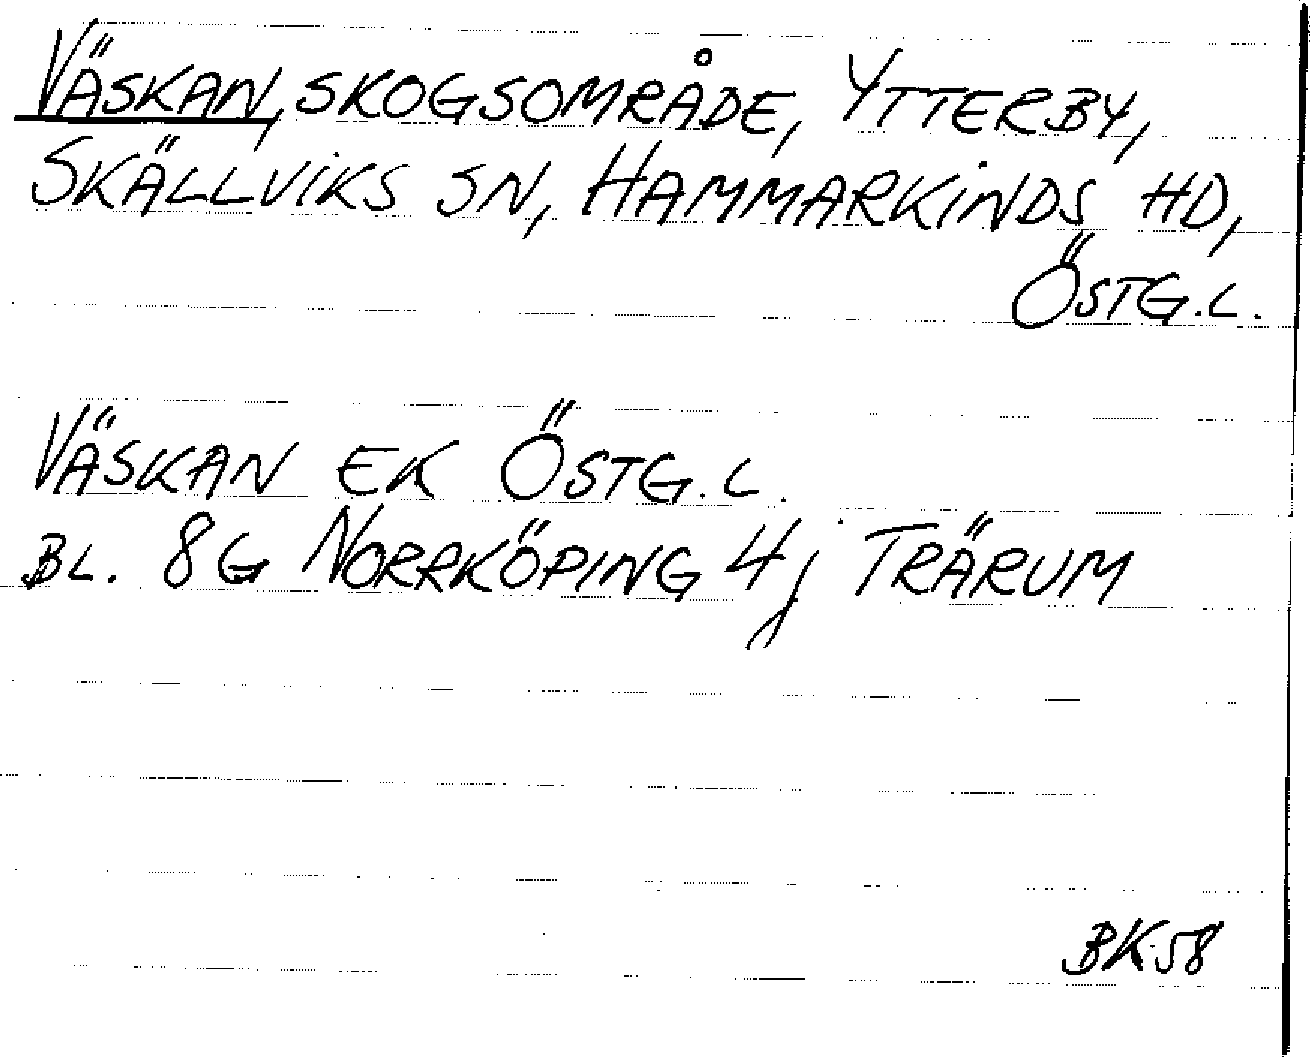 VÄSKAN, SKOGSOMRÅDE, YTTERBY,
SKÄLLVIKS SN, HAMMARKINDS HD,
ÖSTG.L.
VÄSKAN EK ÖSTG.L.
BL. 8G NORRKÖPING 4j TRÄRUM
BK58